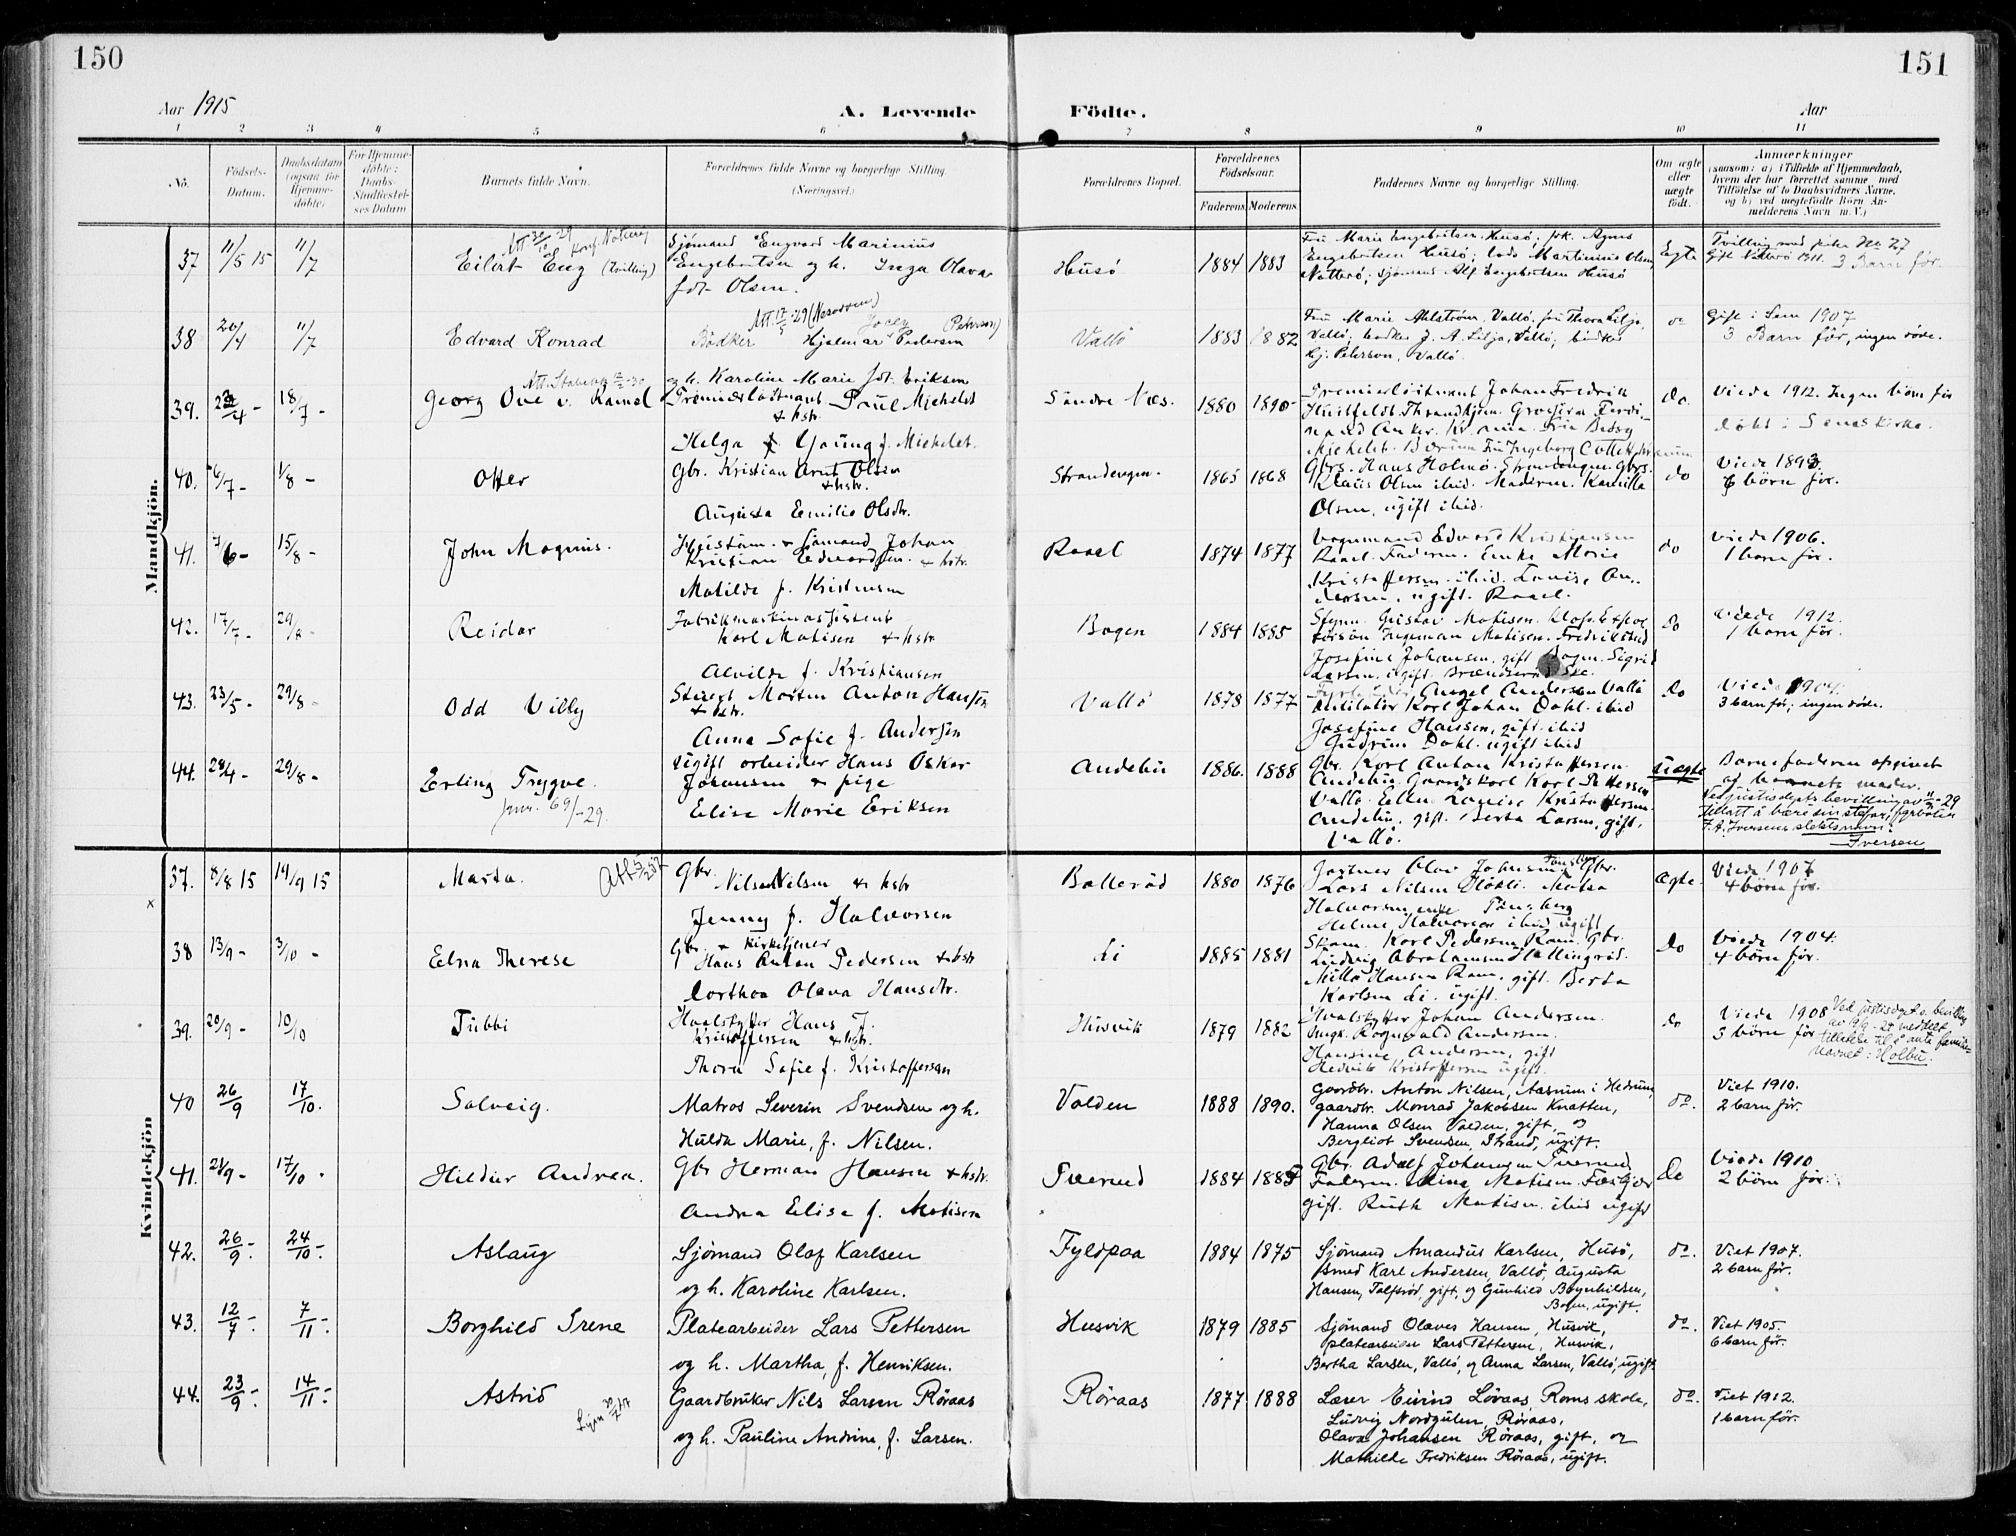 150
151
Aar 1915
A. Levende
Födte.
Aar
1 2 3 4 5 6 7 8 9 10 11
No.
Födsels-Datum.
Daabsdatum (ogsaa for Hjemme-döbte)
For Hjemme-döbte: Daabs-Stadfæstel-ses Datum
Barnets fulde Navn.
Forældrenes fulde Navne og borgerlige Stilling. (Næringsvei.)
Forældrenes Bopæl.
Forældrenes Födselsaar.
Faderens Moderens
Faddernes Navne og borgerlige Stilling.
Om ægte eller uægte födt.
Anmærkninger
(saasom: a) i Tilfælde af Hjemmedaab, hvem der har forrettet samme med Tilföielse af to Daabsvidners Navne, og b) ved uægtefödte Börn An-melderens Navn m. V.)
Mandkjön.
37 11/5 15 11/7 Eilert Eng (tvilling) Sjömand Engvard Marinius
Engebretsen og h. Inga Olava
fdt. Olsen.
Husö 1884 1883 Fru Marie Engebretsen Husö; frk. Agnes
Engebretsen Husö; lods Martinius Olsen
Natterö; Sjömand Alf Engebretsen Husö
Egte Tvilling med pike No 27
Gift Nötterö 1911. 3 Barn før.
38 20/4 11/7 Edvard Konrad Bödker Hjalmar Pedersen (Peterson)
og h. Karoline Marie fdt. Eriksen
Vallö 1883 1882 Fru Marie Ahlström, Vallö, fru Thora Lilja,
Vallö; bödker J. A. Lilja, Vallö; bödker
Hj. Peterson, Vallö.
do Gift i Sem 1907
3 Barn før, ingen döde.
39. 23/4 - 18/7 - Georg Ove v. Ramel Premierlöitnant Poul Michelet
& hstr.
Helga f. Young f. Michelet.
Söndre Næs. 1880 1890 Premierlöitnant Johan Fredrik
Huitfeldt. Throndhjem.
do. Viede 1912. Ingen börn för
Döbt i Sems Kirke.
40. 6/7 - 1/8 - Otter Gbr. Kristian Arnt Olsen
& hstr.
Augusta Emilie Olsdtr.
Strandengen. 1865 1868 Gbrs. Hans Holmö. Strandengen. Gbrs.
Klaus Olsen ibid. Kamilla
Olsen, ugift ibid.
do Viede 1893.
6 börn för.
41. 7/6 - 15/8 - John Magnus. & sjömand Johan
Kristian Edvardsen. & hstr.
Matilde f. Kristensen
Rosel 1874 1877 Edvard Kristiansen
Rosel. Faderen. Enke Marie
Kristoffersen. ibid. Lovise An-
dersen, ugift. Rosel.
do Viede 1906.
1 barn för.
42. 17/7 - 29/8 - Reidar Fabrikmaskinassistent
Karl Matisen & hstr
Alvilde f. Kristiansen
Bogen 1884 1885 Gustav Matisen.
Ingeman Matisen. Fredrikstad
Josefine Johansen. gift Bogen. Sigrid
Larsen. ugift.
do Viede 1912.
1 barn för.
43. 23/5 - 29/8 - Odd Villy Morten Anton Hansen
& hstr.
Anna Sofie f. Andersen
Vallö 1878 1877 Angel Andersen Vallö
Karl Johan Dahl. ibid
Josefine Hansen, gift. ibid
Gudrun Dahl. ugift ibid
do Viede 1904.
3 barn för, ingen döde.
44. 28/4 - 29/8 - Erling Trygve. ugift arbeider Hans Oskar
Johansen & pige
Elise Marie Eriksen
Andebu 1886. 1888 Gbr. Karl Anton Kristoffersen.
Andebu. Gaardskarl Karl Pettersen
Vallö. Ellen Lovise Kristoffersen.
Andebu. gift. Berta Larsen, gift.
Vallö.
uægte Barnefaderen opgivet
af barnets moder.
Ved justisdepts bevilling av -29
tillatt å bære sin stefar, fyrböter
F. A. Iversens slektsnavn:
Iversen
Kvindekjön
37. 8/8 15 19/9 15 Marta. Gbr.
Nils Nilsen & hstr
Jenny f. Halvorsen
Balleröd 1880 1876 Gartner Olav Johansen Tönsberg Gbr.
Lars Nilsen
Halvorsen enke Tönsberg
Helene Halvorsen ibid ugift
Ægte. Viede 1907
4 börn för.
38 13/9 - 3/10 - Edna Therese Gbr. & kirketjener
Hans Anton Pedersen & hstr
Dorthea Olava Hansdtr.
Li 1885 1881 Karl Pedersen Ram. Gbr.
Ludvig Abrahamsen
Milla Hansen Ram, gift. Berta
Karlsen Li. ugift.
do Viede 1904.
4 börn för.
39. 20/9 - 10/10 Tubbi Hvalskytter Hans J.
Kristoffersen & hstr.
Thora Sofie f. Kristoffersen
Husvik 1879 1882 Hvalskytter Johan Andersen.
Ungk. Ragnvald Andersen.
Hansine Andersen, gift
Hedvik Kristoffersen ugift.
do Viede 1908
3 börn för
Ved justisdept.s bevilling
tillatelse til å anta familie-
navnet: Holbu.
40 26/9 17/10. Solveig. Matros Severin Svendsen og h.
Hulda Marie, f. Nilsen.
Volden 1888 1890. Gaardbr. Anton Nilsen, Aasrum i Hedrum,
gaardbr. Monrad Jakobsen Knatten,
Hanna Olsen Volden, gift, og
Bergliot Svendsen, Strand, ugift.
do. Viet 1910.
2 barn før.
41. 21/9 - 17/10 - Hildur Andrea. Gbr Herman Hansen & hstr.
Andrea Elise f. Matisen
Tverved 1884 1885 Gbr. Adolf Johansen Tverved
Faderen. Mina Matisen.
gift. Ruth Matisen. ibid ugift
do Viede 1910
2 börn för.
42. 26/9 - 24/10 - Aslaug Sjømand Olaf Karlsen
og h. Karoline Karlsen.
Fyldpaa 1884 1875 Sjømand Amandus Karlsen, Husö,
smed Karl Andersen, Vallö, Augusta
Hansen, Tolfsrød, gift, og Gunhild Bøynhildsen,
Bogen, ugift.
do. Viet 1907.
2 barn før.
43. 12/7 - 7/11 - Borghild Irene Platearbeider Lars Pettersen
og h. Martha, f. Henriksen.
Husvik 1879 1885 Sjømand Olaves Hansen, Husvik,
platearbeider Lars Pettersen, Husvik,
Bertha Larsen, Vallö, og Anna Larsen, Vallö, ugift.
do. Viet 1905.
6 barn før.
44. 23/9 - 14/11 - Astrid Gaardbruker Nils Larsen Røraas
og h. Pauline Andrine, f. Larsen.
Røraas 1877 1888 Lærer Eivind Løvaas, Roms skole,
Ludvig Nordgulen, Røraas,
Olava Johansen Røraas, gift, og
Mathilde Fredriksen Røraas, ugift.
do. Viet 1912.
1 barn før.